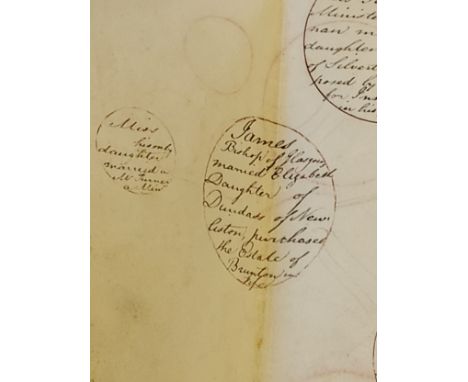 Minist
nan m
daughter
of Silvert
posed by
for Ins
in his
Miss
daughter
married a
Mr Turner
a
James
Bishop of Glasgow
married Elizabeth
Daughter of
Dundass of New
liston, purchased
the Estate of
Brunton in
Fife